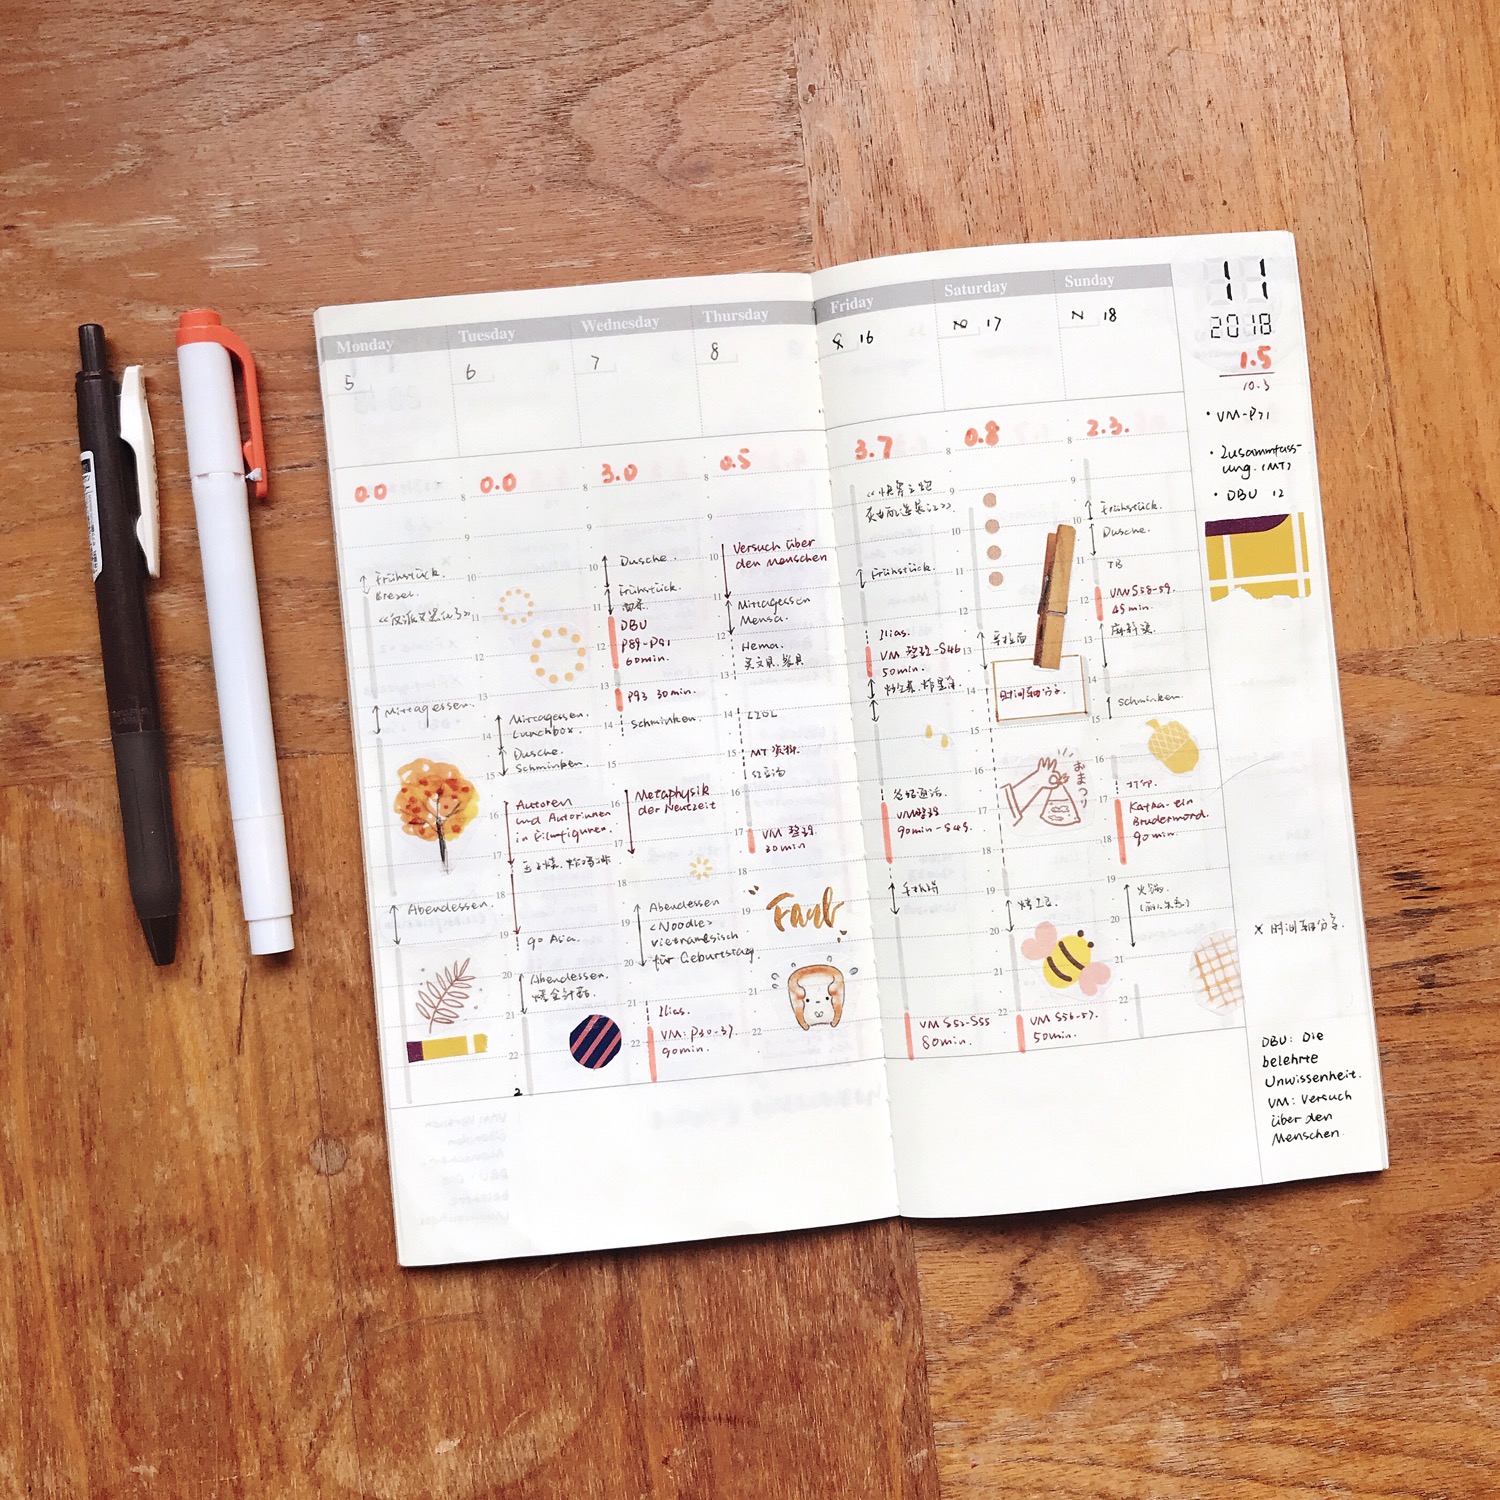 Monday
Tuesday
Wednesday
Thursday
Friday
Saturday
Sunday
5
6
7
8
16
17
18
11
2018
1.5
10.3
• VM-P71
• Zusammfass-
ung (MT)
• DBU 12
0.0
0.0
3.0
0.5
3.7
0.8
2.3.
Frühstück.
Brezel.
Mittagessen.
Abendessen.
Mittagessen.
Lunchbox.
Dusche.
Schminken.
Autoren
und Autorinnen
in Filmfiguren.
go Asia.
Abendessen.
2
Dusche.
Frühstück.
DBU
P89-P91
60min.
P93 30min.
schminken.
Metaphysik
der Neuzeit
Abendessen
<Noodle>
vietnamesisch
für Geburtstag.
Ilias.
VM: P30-37.
90min.
Versuch über
den Menschen
Mittagessen
Mensa.
Hema.
MT 资料.
VM 整理.
30min
Frühstück.
Ilias.
VM 整理-S46
50min.
VM整理
90min-S49.
VM S52-S55
80min.
时间轴分享.
おまつり
VM S56-57.
50min.
Frühstück.
Dusche.
TB
VM S58-59.
45min.
schminken.
打印.
Katha-ein
Brudermord.
90min.
火锅.
× 时间轴分享.
DBU: Die
belehrte
Unwissenheit.
VM: Versuch
über den
Menschen.